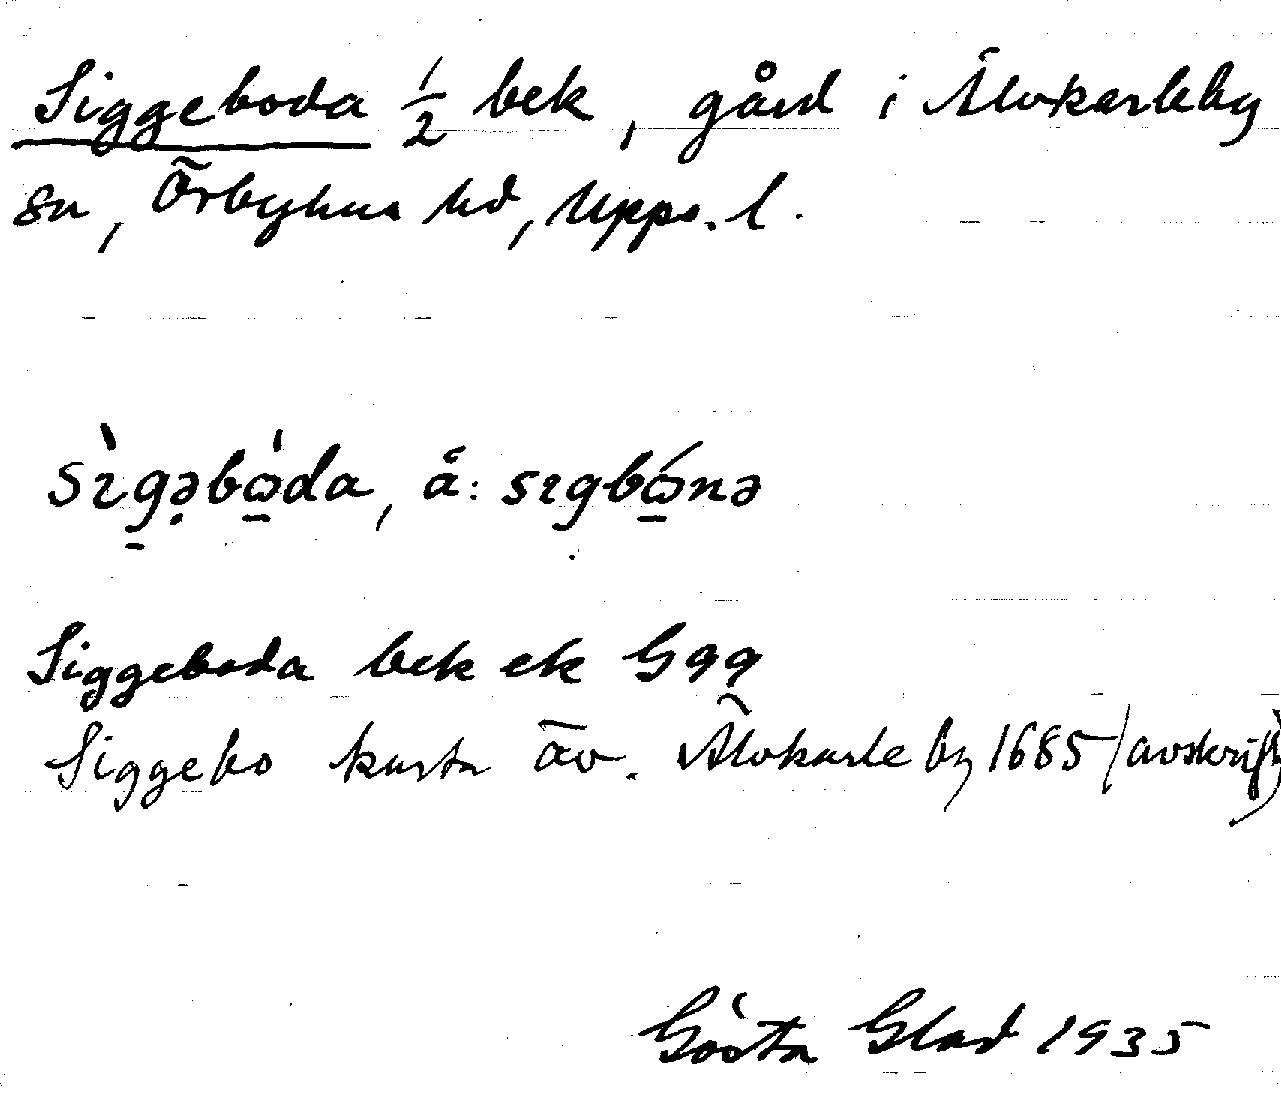 Siggeboda ½ bek, gård i Älvkarleby
sn, Örbyhus hd, Upps. l.
sìgəbὼda, å: sıgbώnə
Siggeboda bek ek G99
Siggebo karta öv. Älvkarleby 1685 (avskrift)
Gösta Glad 1935